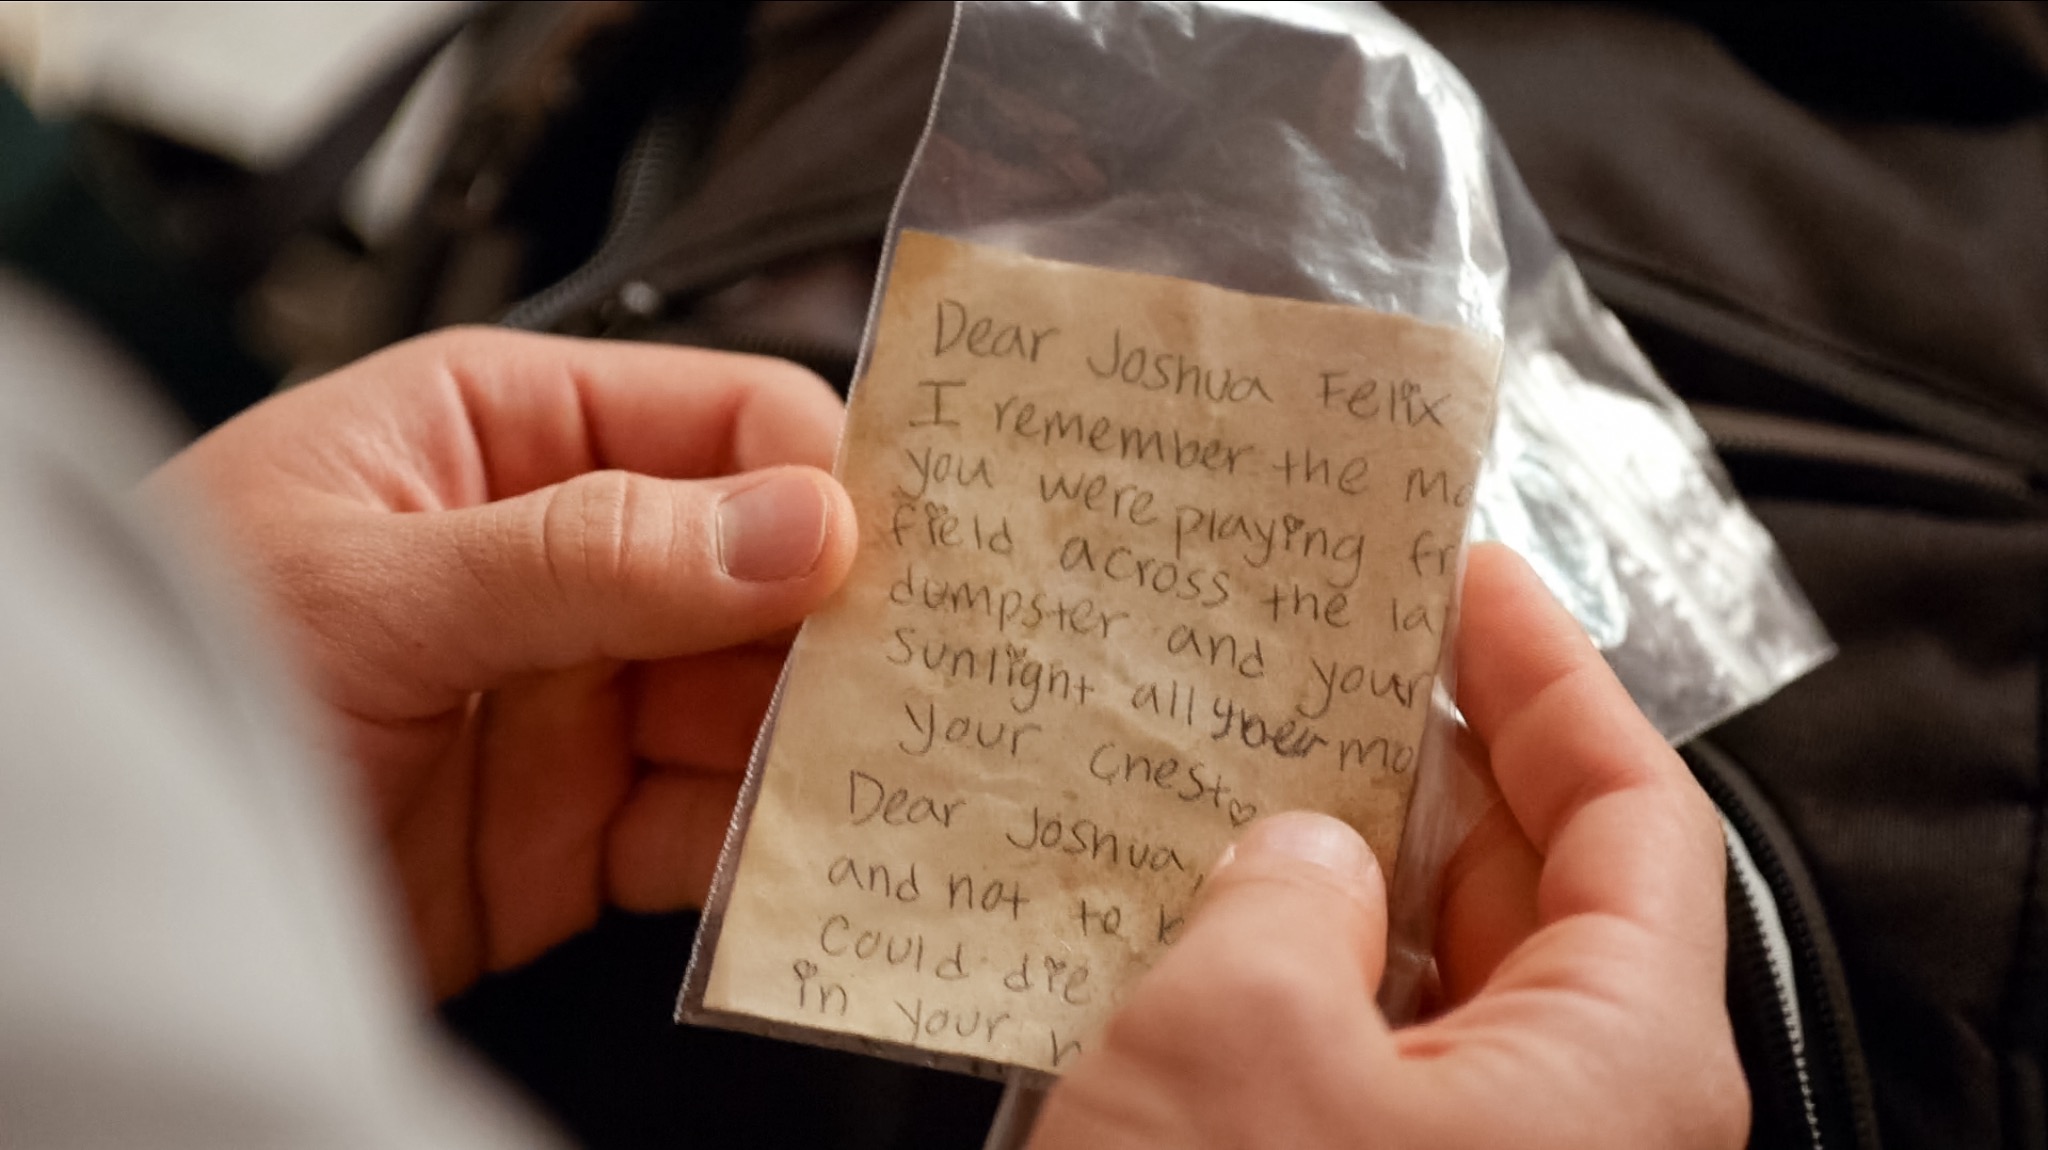 Dear Joshua Felix
I remember the
you were playing
field across the
dumpster and your
sunlight all over
your chest♡
Dear Joshua,
and not to
Could die
in your